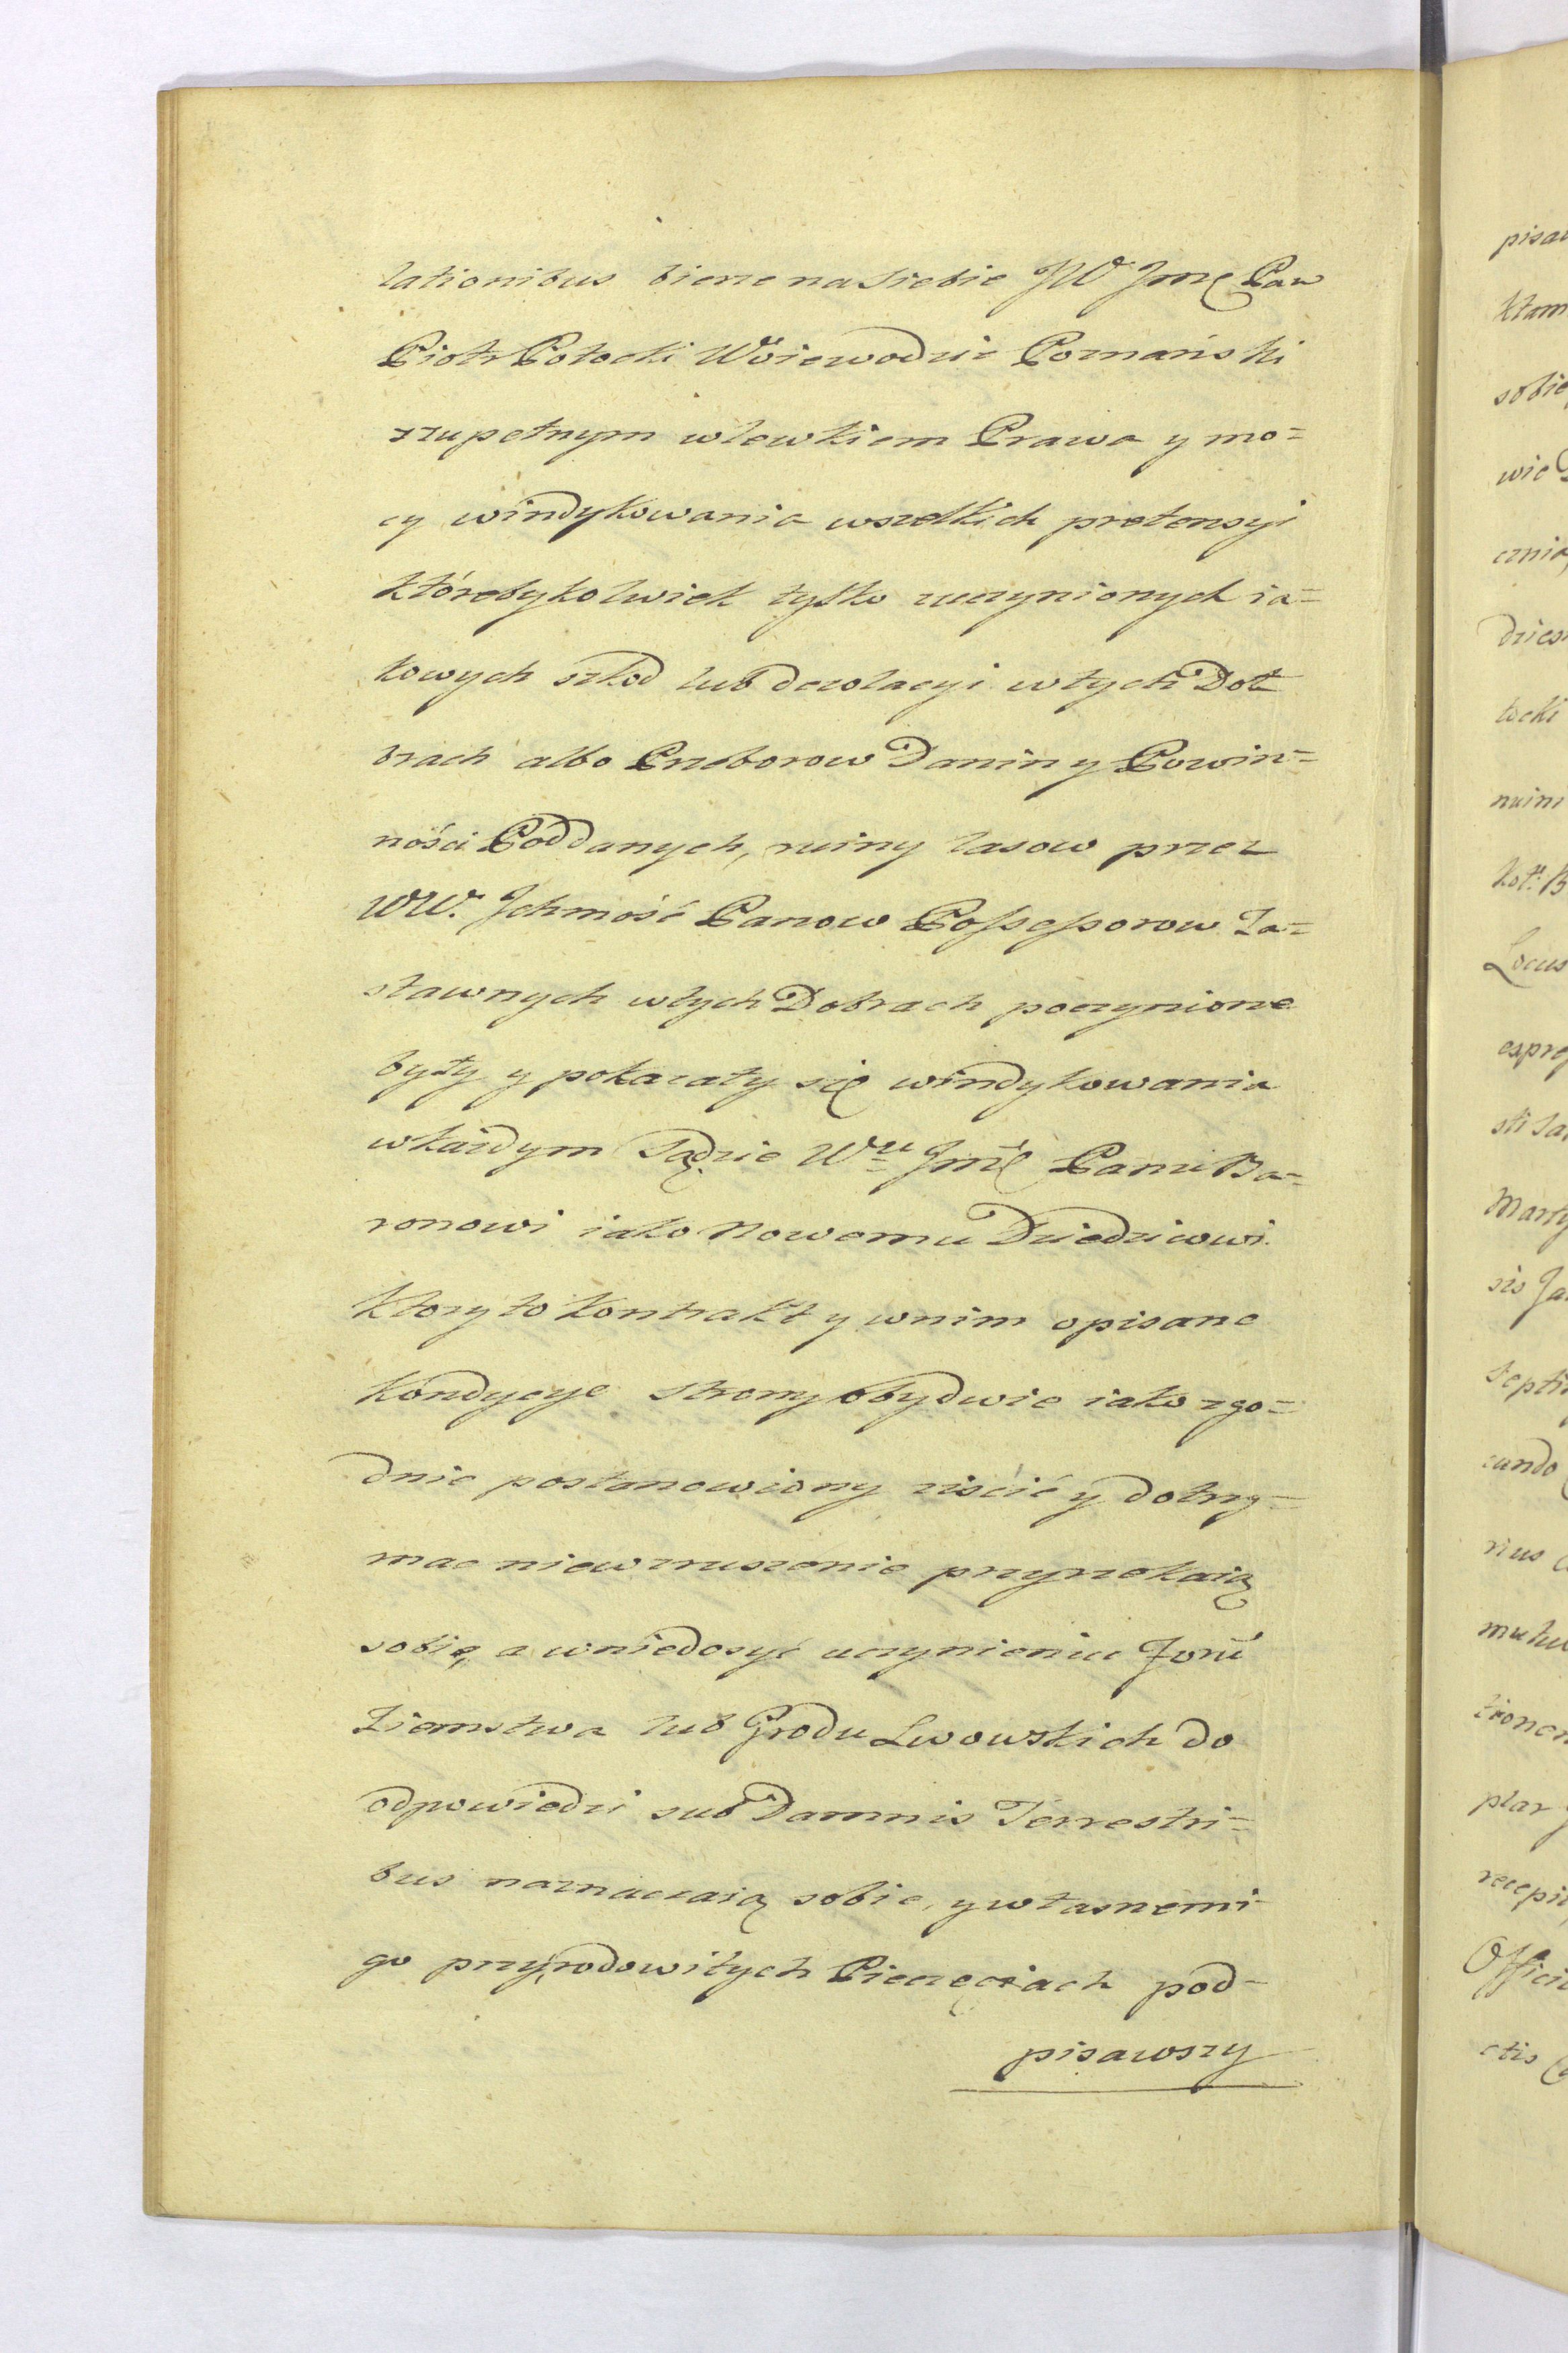 lationibus bierze na siebie JW Jmę Pan
Piotr Potocki Woiewodzic Poznański
zzupełnym wlewkiem Prawa y mo=
cy windykowania wszelkich pretensyi
którebykolwiek tylko uczynionych ia=
kowych szkod lub dezolacyi wtych Dob
brach albo Przeborow Danin y Powin=
ności Poddanych, ruiny lasow przez
WW. Ichmość Panow Possessorow Za=
stawnych wtych Dobrach poczynione
były y pokazały się windykowania
wkażdym Sądzie Wu Jmć Panu Ba=
ronowi iako nowemu Dziedzicowi.
Ktory to Kontrakt y wnim opisane
Kondycye strony obydwie iako zgo=
dnie postanowiony ziścić y dotrzy=
mac niewzruszenie przyrzekaią
sobie, a wniedosyć uczynieniu Forū
Ziemstwa lub Grodu Lwowskich do
odpowiedzi sub Damnis Terrestri=
bus naznaczaią sobie, y własnemi
go przyrodowitych Pieczęciach pod=
pisawszy
pisaw
sobie
wie
cznią
dzies
tocki
Locus
Marty
sis Ja
Septi
cundo
rius
plar
recepi
Officii
ctis